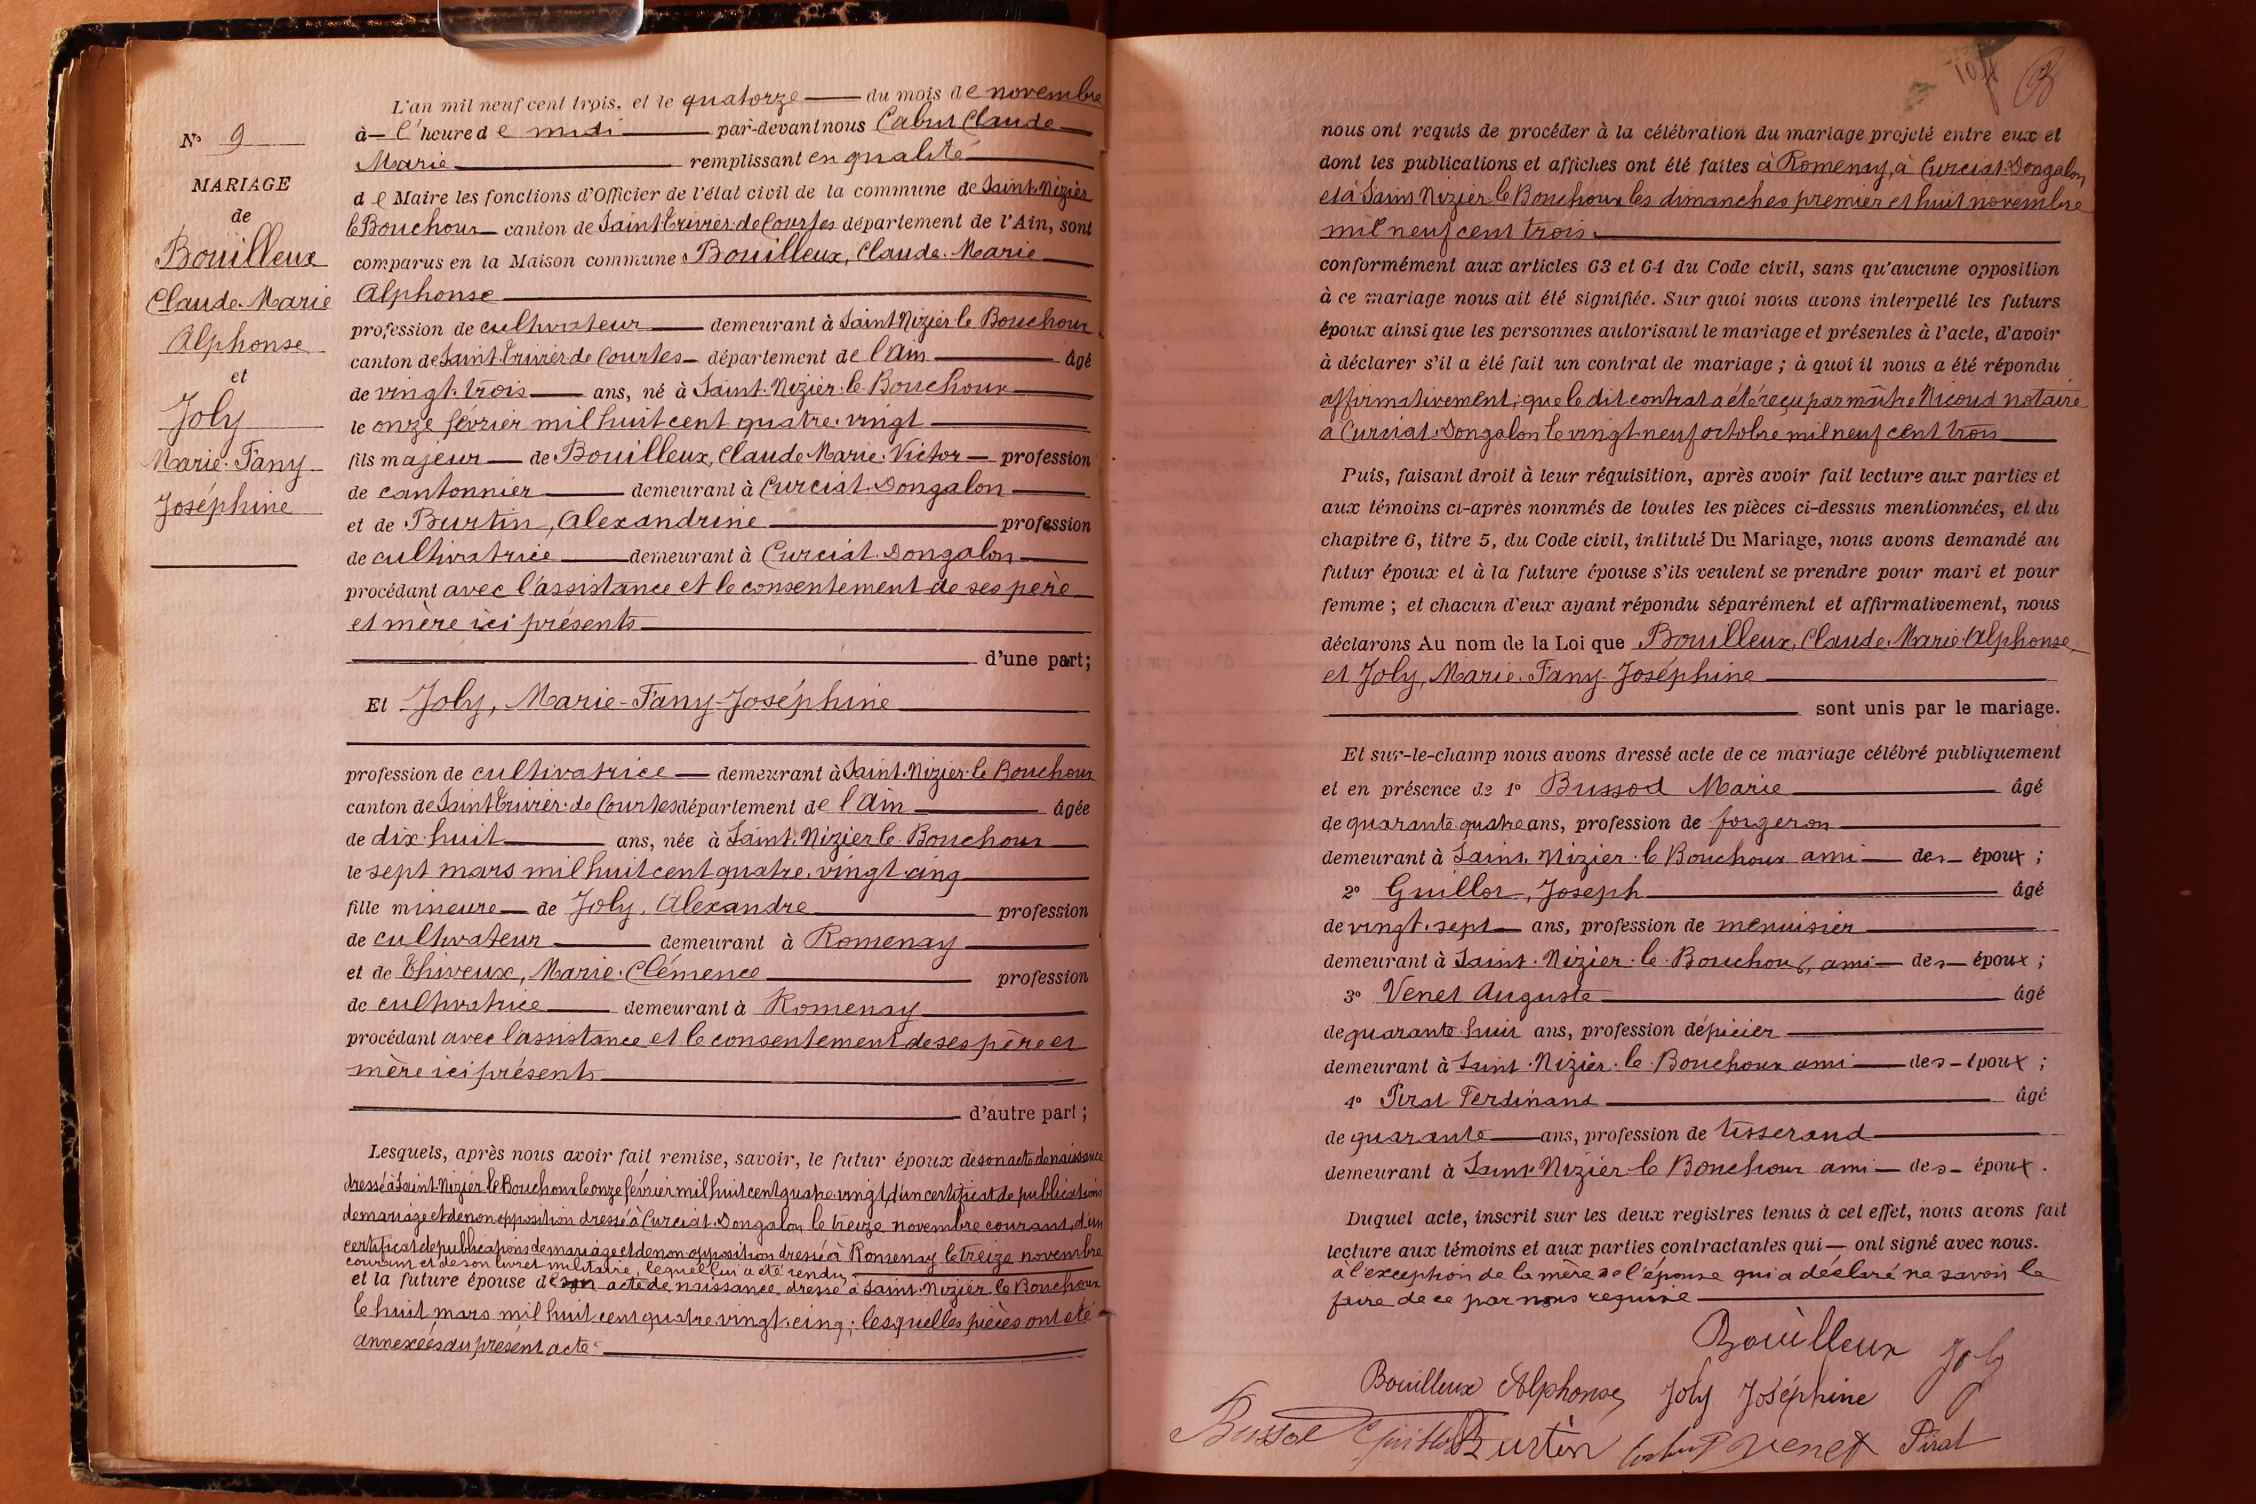 N° 9
MARIAGE
de
Bouilleux
Claude-Marie
Alphonse
et
Joly
Marie-Fany
Joséphine
L'an mil neuf cent trois, et le quatorze du mois de novembre
à l'heure de midi par-devant nous Cabut Claude
Marie remplissant en qualité
de Maire les fonctions d'Officier de l'état civil de la commune de Saint-Nizier
le Bouchoux canton de Saint-Trivier-de-Courtes département de l'Ain, sont
comparus en la Maison commune Bouilleux, Claude-Marie
Alphonse
profession de cultivateur demeurant à Saint Nizier le Bouchoux
canton de Saint Trivier de Courtes département de l'Ain âgé
de vingt-trois ans, né à Saint-Nizier-le-Bouchoux
le onze février mil huit cent quatre-vingt
fils majeur de Bouilleux, Claude Marie-Victor profession
de cantonnier demeurant à Curciat-Dongalon
et de Burtin, Alexandrine profession
de cultivatrice demeurant à Curciat-Dongalon
procédant avec l'assistance et le consentement de ses père
et mère ici présents
d'une part;
Et Joly, Marie-Fany-Joséphine
profession de cultivatrice demeurant à Saint-Nizier-le Bouchoux
canton de Saint Trivier-de Courtes département de l'Ain âgée
de dix-huit ans, née à Saint-Nizier le Bouchoux
le sept mars mil huit cent quatre-vingt-cinq
fille mineure de Joly, Alexandre profession
de cultivateur demeurant à Romenay
et de Thiveux, Marie-Clémence profession
de cultivatrice demeurant à Romenay
procédant avec l'assistance et le consentement de ses père et
mère ici présents
d'autre part;
Lesquels, après nous avoir fait remise, savoir, le futur époux de son acte de naissance
dressé à Saint-Nizier le Bouchoux le onze février mil huit cent quatre-vingt, d'un certificat de publications
de mariage et de non opposition dressé à Curciat-Dongalon le treize novembre courant, d'un
certificat de publications de mariage et de non opposition dressé à Romenay le treize novembre
courant et de son livret militaire, lequel lui a été rendu
et la future épouse de son acte de naissance dressé à Saint-Nizier-le Bouchoux
le huit mars mil huit cent quatre vingt-cinq; lesquelles pièces ont été
annexées au présent acte
nous ont requis de procéder à la célébration du mariage projeté entre eux et
dont les publications et affiches ont été faites à Romenay, à Curciat-Dongalon
et à Saint Nizier-le Bouchoux les dimanches premier et huit novembre
mil neuf cent trois.
conformément aux articles 63 et 64 du Code civil, sans qu'aucune opposition
à ce mariage nous ait été signifiée. Sur quoi nous avons interpellé les futurs
époux ainsi que les personnes autorisant le mariage et présentes à l'acte, d'avoir
à déclarer s'il a été fait un contrat de mariage; à quoi il nous a été répondu
affirmativement; que le dit contrat a été reçu par maître Nicoud notaire
à Curciat-Dongalon le vingt-neuf octobre mil neuf cent trois
Puis, faisant droit à leur réquisition, après avoir fait lecture aux parties et
aux témoins ci-après nommés de toutes les pièces ci-dessus mentionnées, et du
chapitre 6, titre 5, du Code civil, intitulé Du Mariage, nous avons demandé au
futur époux et à la future épouse s'ils veulent se prendre pour mari et pour
femme; et chacun d'eux ayant répondu séparément et affirmativement, nous
déclarons Au nom de la Loi que Bouilleux, Claude-Marie-Alphonse
et Joly, Marie-Fany-Joséphine
sont unis par le mariage.
Et sur-le-champ nous avons dressé acte de ce mariage célébré publiquement
et en présence de 1° Bussod Marie âgé
de quarante-quatre ans, profession de forgeron
demeurant à Saint-Nizier-le Bouchoux ami des époux;
2° Guillot, Joseph âgé
de vingt-sept ans, profession de menuisier
demeurant à Saint-Nizier-le-Bouchoux, ami des époux;
3° Venet Auguste âgé
de quarante-huit ans, profession d'épicier
demeurant à Saint-Nizier-le-Bouchoux ami des époux;
4° Pirat Ferdinand âgé
de quarante ans, profession de tisserand
demeurant à Saint-Nizier-le Bouchoux ami des époux.
Duquel acte, inscrit sur les deux registres tenus à cet effet, nous avons fait
lecture aux témoins et aux parties contractantes qui ont signé avec nous.
à l'exception de la mère de l'épouse qui a déclaré ne savoir le
faire de ce par nous requise
Bouilleux Joly
Bouilleux Alphonse Joly Joséphine
Bussod Guillot Burtin Cabut Venet Pirat